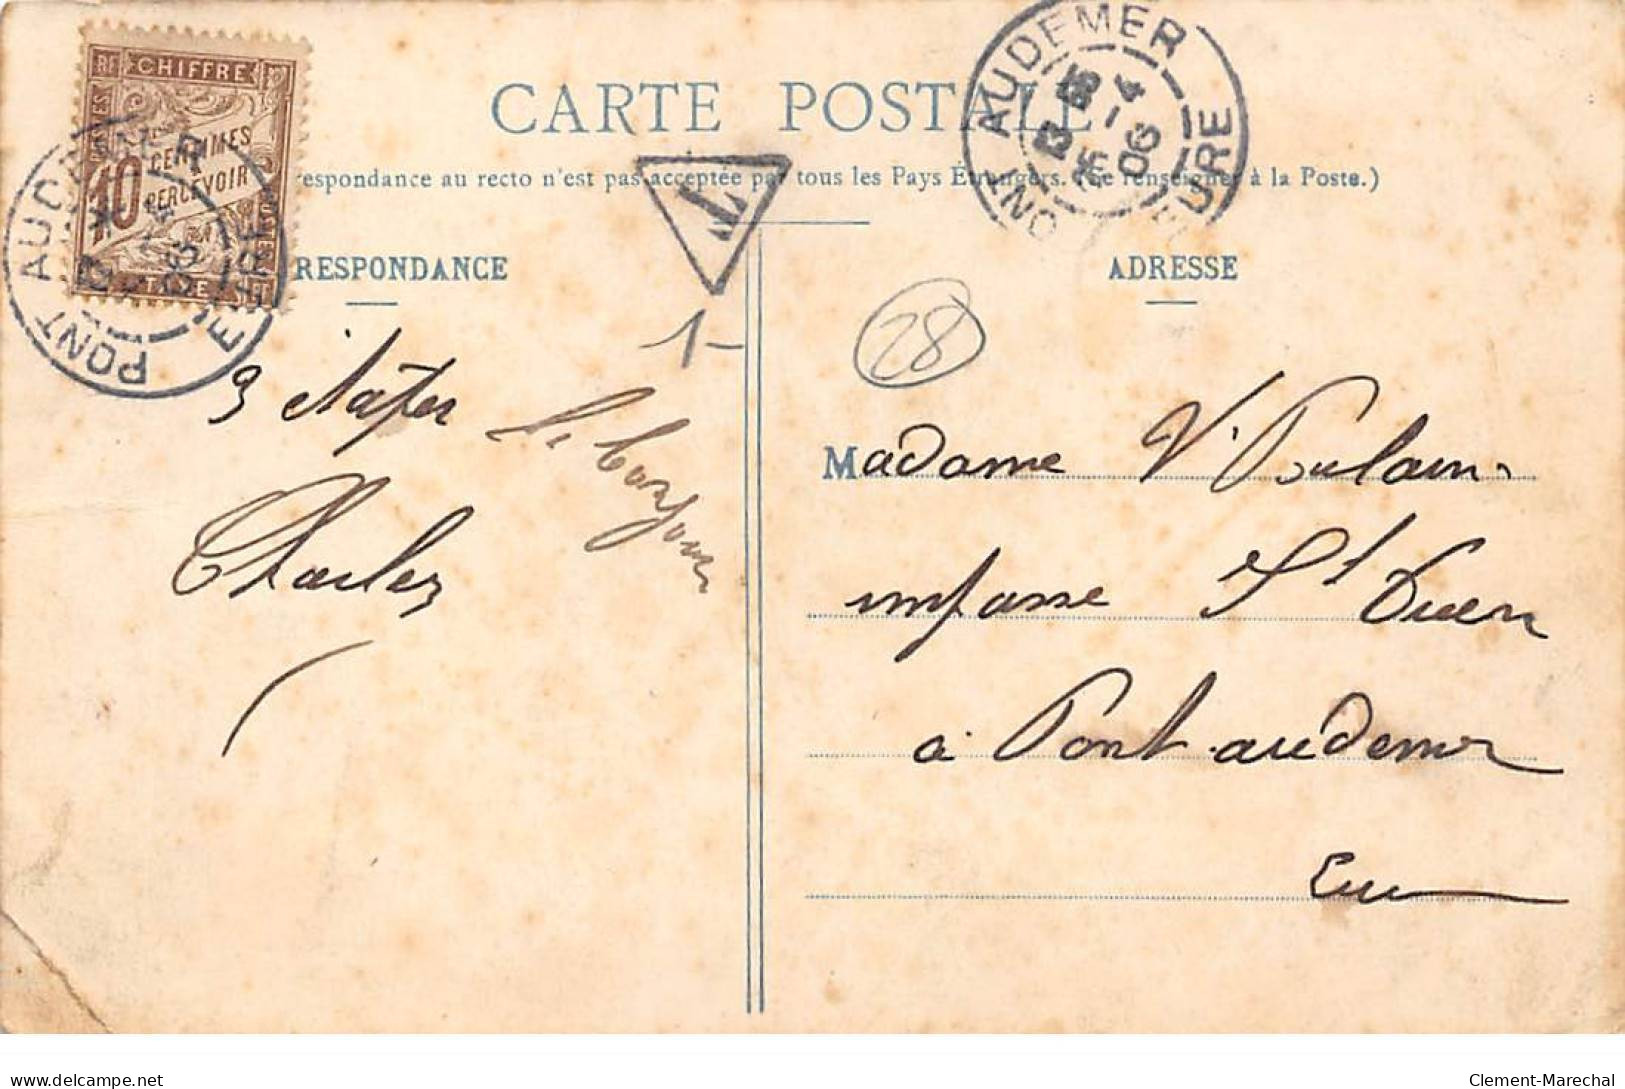 CARTE POSTALE
respondance au recto n'est pas acceptée par tous les Pays Étrangers. (Se renseigner à la Poste.)
RF CHIFFRE
10 CENTIMES
A PERCEVOIR
TAXE
PONT AUDEMER
EURE
T
AUDEMER
EURE
15 -4
06
RESPONDANCE
ADRESSE
1-
28
Charles
Madame V. Poulain
impasse St Ouen
à Pont audemer
Eure
delcampe.net
Clement-Marechal